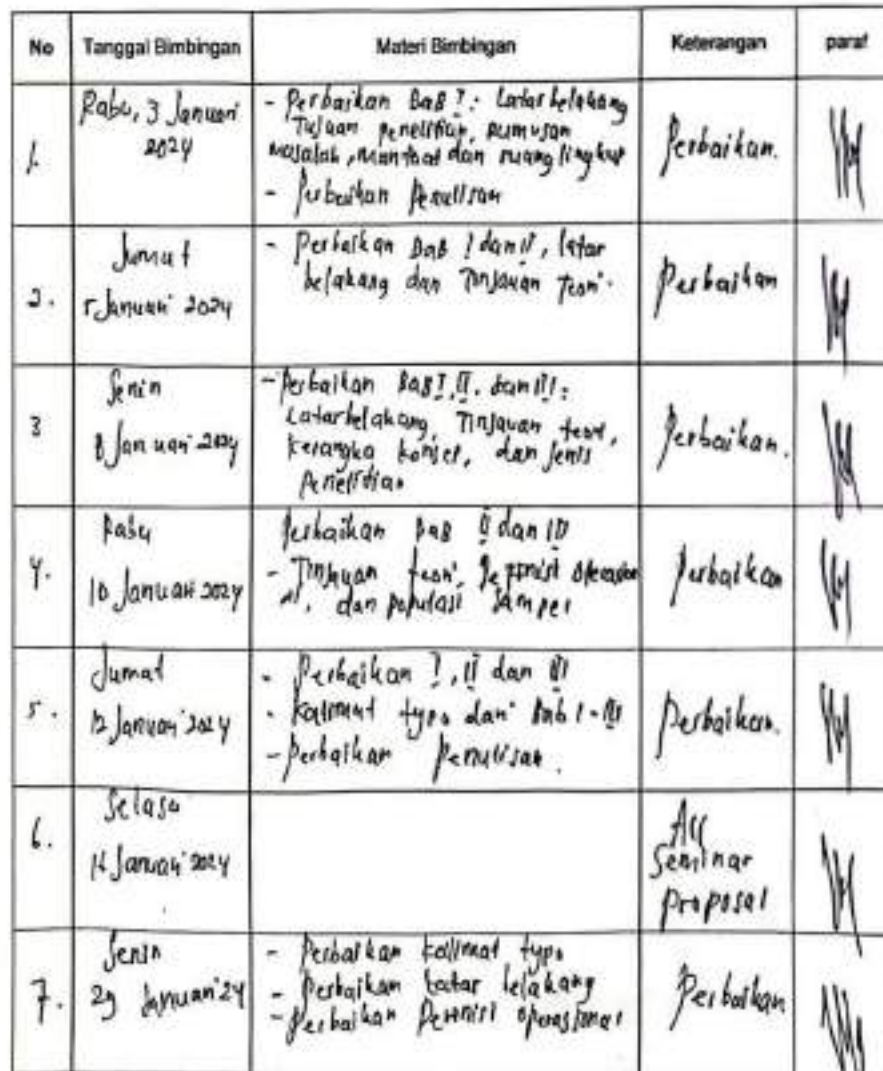 No Tanggal Bimbingan Materi Bimbingan Keterangan paraf
1. Rabu, 3 Januari 2024
- Perbaikan BaB I: Latar belakang
Tujuan penelitian, rumusan
masalah, manfaat dan ruang lingkup
- Perbaikan Penulisan
Perbaikan.
2. Jumat
5 Januari 2024
- Perbaikan BaB I dan II, latar
belakang dan Tinjauan Teori.
Perbaikan
3 Senin
8 Januari 2024
- Perbaikan BaB I, II, dan III:
Latarbelakang, Tinjauan teori,
kerangka konsep, dan Jenis
Penelitian
Perbaikan.
4. Rabu
10 Januari 2024
Perbaikan BaB II dan III
- Tinjauan teori, Depinisi
dan populasi Sampel
Perbaikan
5. Jumat
12 Januari 2024
- Perbaikan I, II dan III
- Kalimat typo dari Bab I - III
- Perbaikan Penulisan.
Perbaikan.
6. Selasa
Januari 2024
Acc
Seminar
Proposal
7. Senin
29 Januari 24
- Perbaikan kalimat typo
- Perbaikan Latar belakang
- Perbaikan Depinisi operasional
Perbaikan